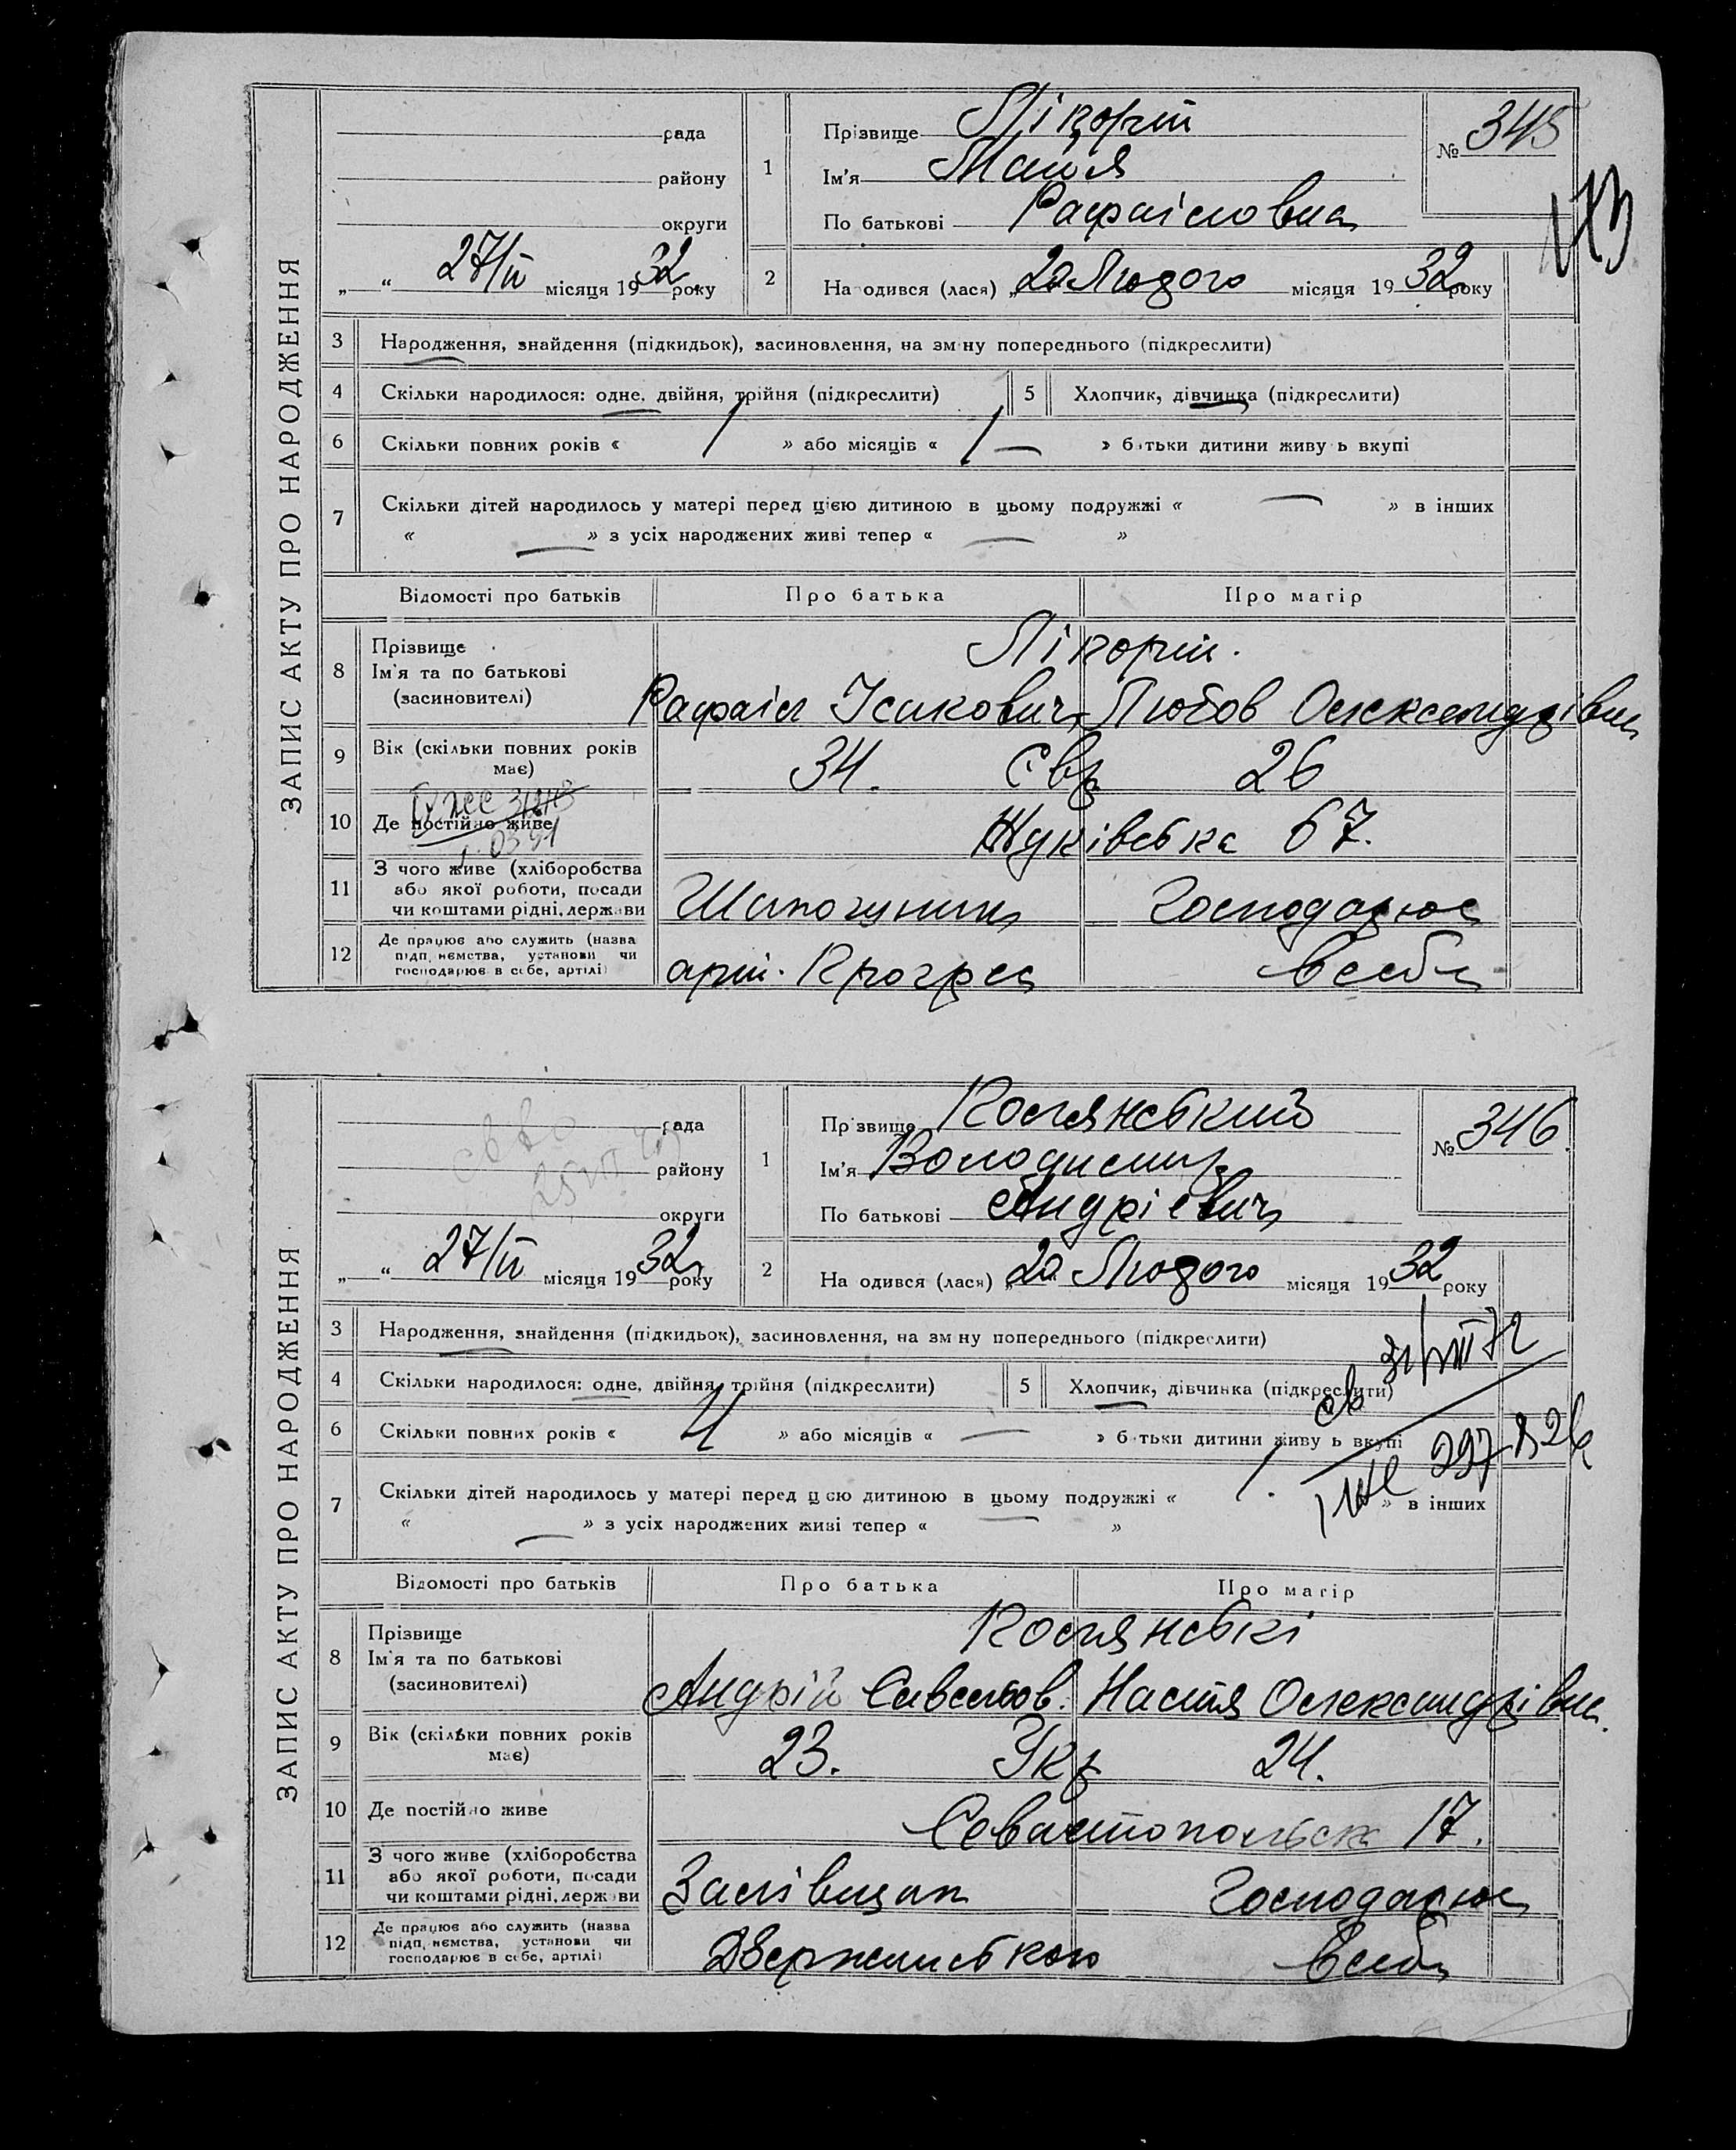 ЗАПИС АКТУ ПРО НАРОДЖЕННЯ
рада
району
округи
„ “ 27/II місяця 1932 року
1
Прізвище Лікорт
Ім'я Майя
По батькові Рафаіловна
№ 345
2
Народився (лася) „20 Лютого місяця 1932 року
3 Народження, знайдення (підкидьок), засиновлення, на зміну попереднього (підкреслити)
4 Скільки народилося: одне, двійня, трійня (підкреслити)
5 Хлопчик, дівчинка (підкреслити)
6 Скільки повних років « 1 » або місяців « — » батьки дитини живуть вкупі
7 Скільки дітей народилось у матері перед цією дитиною в цьому подружжі « — » в інших
« — » з усіх народжених живі тепер « — »
Відомості про батьків
Про батька
Про матір
8 Прізвище
Ім'я та по батькові
(засиновителі)
Лікорт.
Рафаіл Ісакович Любов Олександрівна
9 Вік (скільки повних років
має)
34. Євр 26
10 Де постійно живе
Жуківська 67.
11 З чого живе (хліборобства
або якої роботи, посади
чи коштами рідні, держави
Шапошник Господарює
12 Де працює або служить (назва
підприємства, установи чи
господарює в себе, артілі)
арт. Прогрес в себе
ЗАПИС АКТУ ПРО НАРОДЖЕННЯ
рада
району
округи
„ “ 27/II місяця 1932 року
1
Прізвище Костянський
Ім'я Володимир
По батькові Андрієвич
№ 346.
2
Народився (лася) „20 Лютого місяця 1932 року
3 Народження, знайдення (підкидьок), засиновлення, на зміну попереднього (підкреслити)
4 Скільки народилося: одне, двійня, трійня (підкреслити)
5 Хлопчик, дівчинка (підкреслити)
6 Скільки повних років « 4 » або місяців « — » батьки дитини живуть вкупі
7 Скільки дітей народилось у матері перед цією дитиною в цьому подружжі « 1. » в інших
« — » з усіх народжених живі тепер « — »
Відомості про батьків
Про батька
Про матір
8 Прізвище
Ім'я та по батькові
(засиновителі)
Костянські
Андрій Савельов. Настя Олександрівна.
9 Вік (скільки повних років
має)
23. Укр 24.
10 Де постійно живе
Севастопольск 17.
11 З чого живе (хліборобства
або якої роботи, посади
чи коштами рідні, держави
Господарює
12 Де працює або служить (назва
підприємства, установи чи
господарює в себе, артілі)
в себе